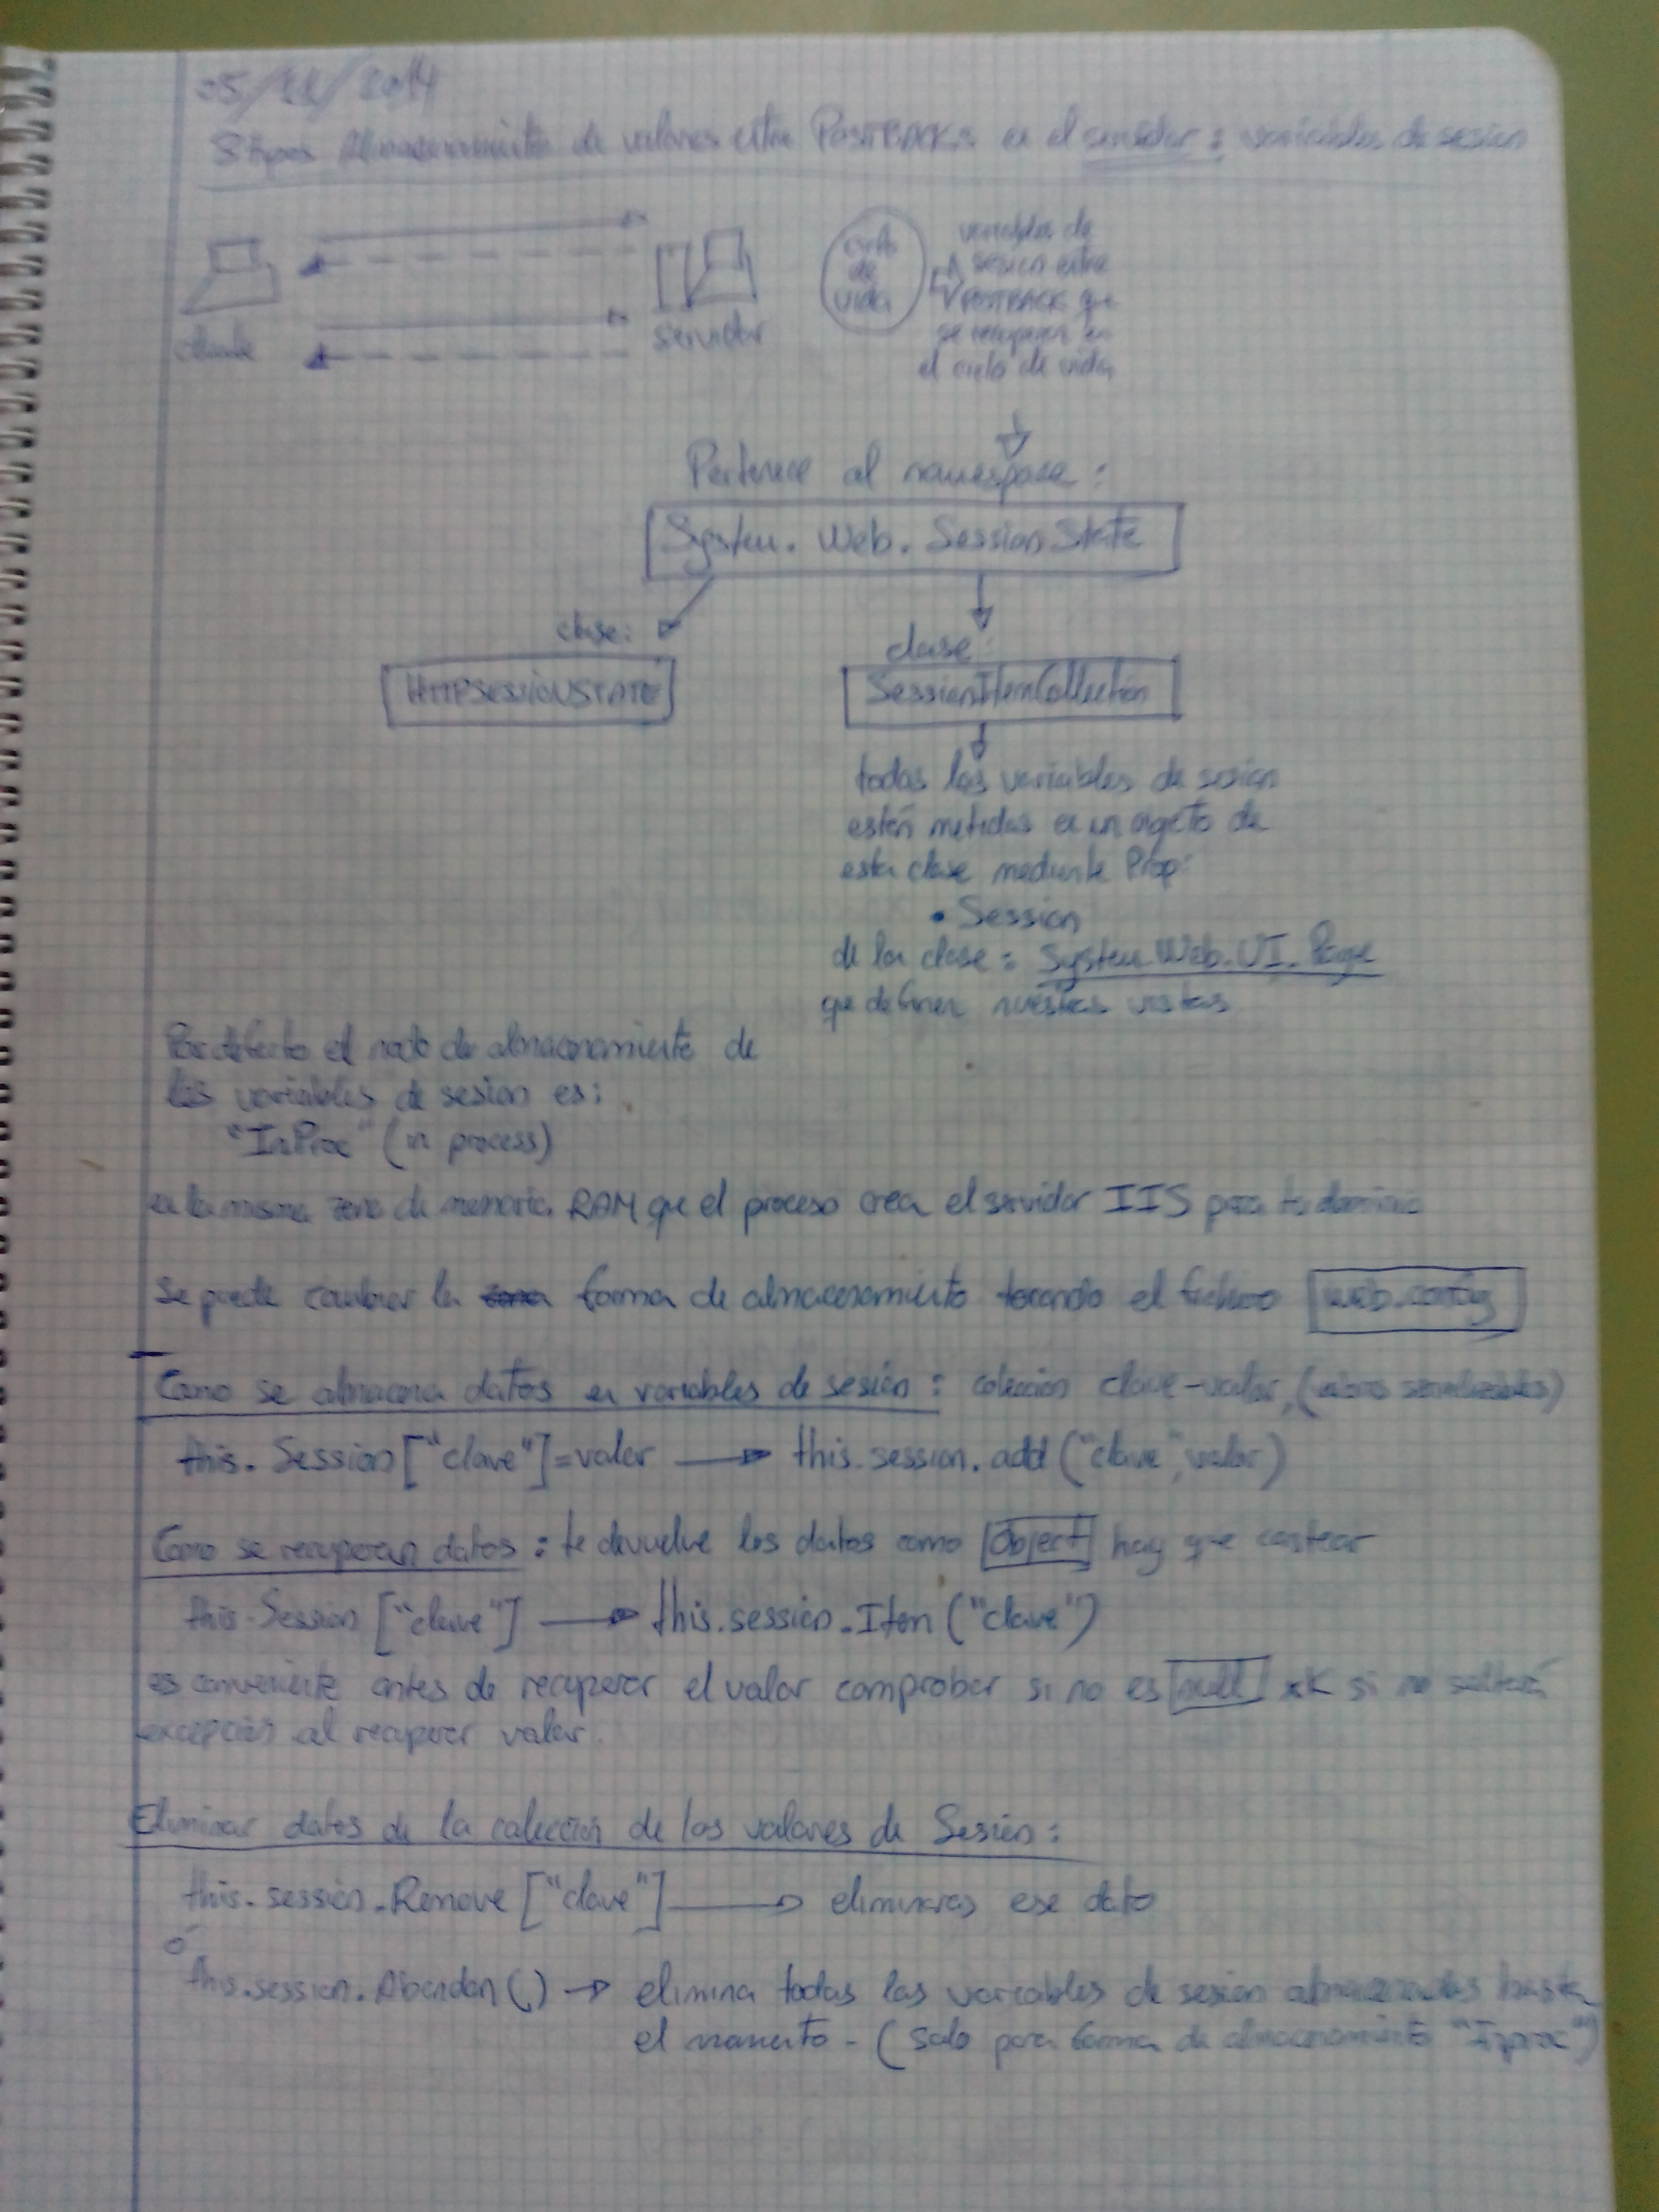 05/11/2014
Almacenamiento de valores entre POSTBACKS en el servidor : variables de sesion
cliente
servidor
ciclo
de
vida
variables de
sesion entre
POSTBACK que
se recuperan en
el ciclo de vida
Pertenece al namespace :
System. Web. SessionState
clase:
HTTPSESSIONSTATE
clase:
SessionItemCollection
todas las variables de sesion
estén metidas en un ojeto de
esta clase mediante Prop:
• Session
de la clase : System.Web.UI.Page
que definen nuestras vistas
Por defecto el modo de almacenamiento de
las variables de sesion es:
"InProc" (in process)
en la misma zona de memoria RAM que el proceso crea el servidor IIS para tu dominio
se puede cambiar la zona forma de almacenamiento tocando el fichero web.config
Como se almacena datos en variables de sesión : coleccion clave-valor, (valores serializables)
this. Session["clave"]=valor → this.session.add("clave",valor)
Como se recuperan datos : te devuelve los datos como Object hay que castear
this.Session ["clave"] → this.session.Item ("clave")
es conveniente antes de recuperar el valor comprobar si no es null xK si no saltará
excepcion al recuperar valor.
Eliminar datos de la coleccion de los valores de Sesión :
this.session.Remove ["clave"] → eliminas ese dato
ó
this.session.Abandon() → elimina todas las variables de sesion almacenadas hasta
el momento - (solo para forma de almacenamiento "Inproc")